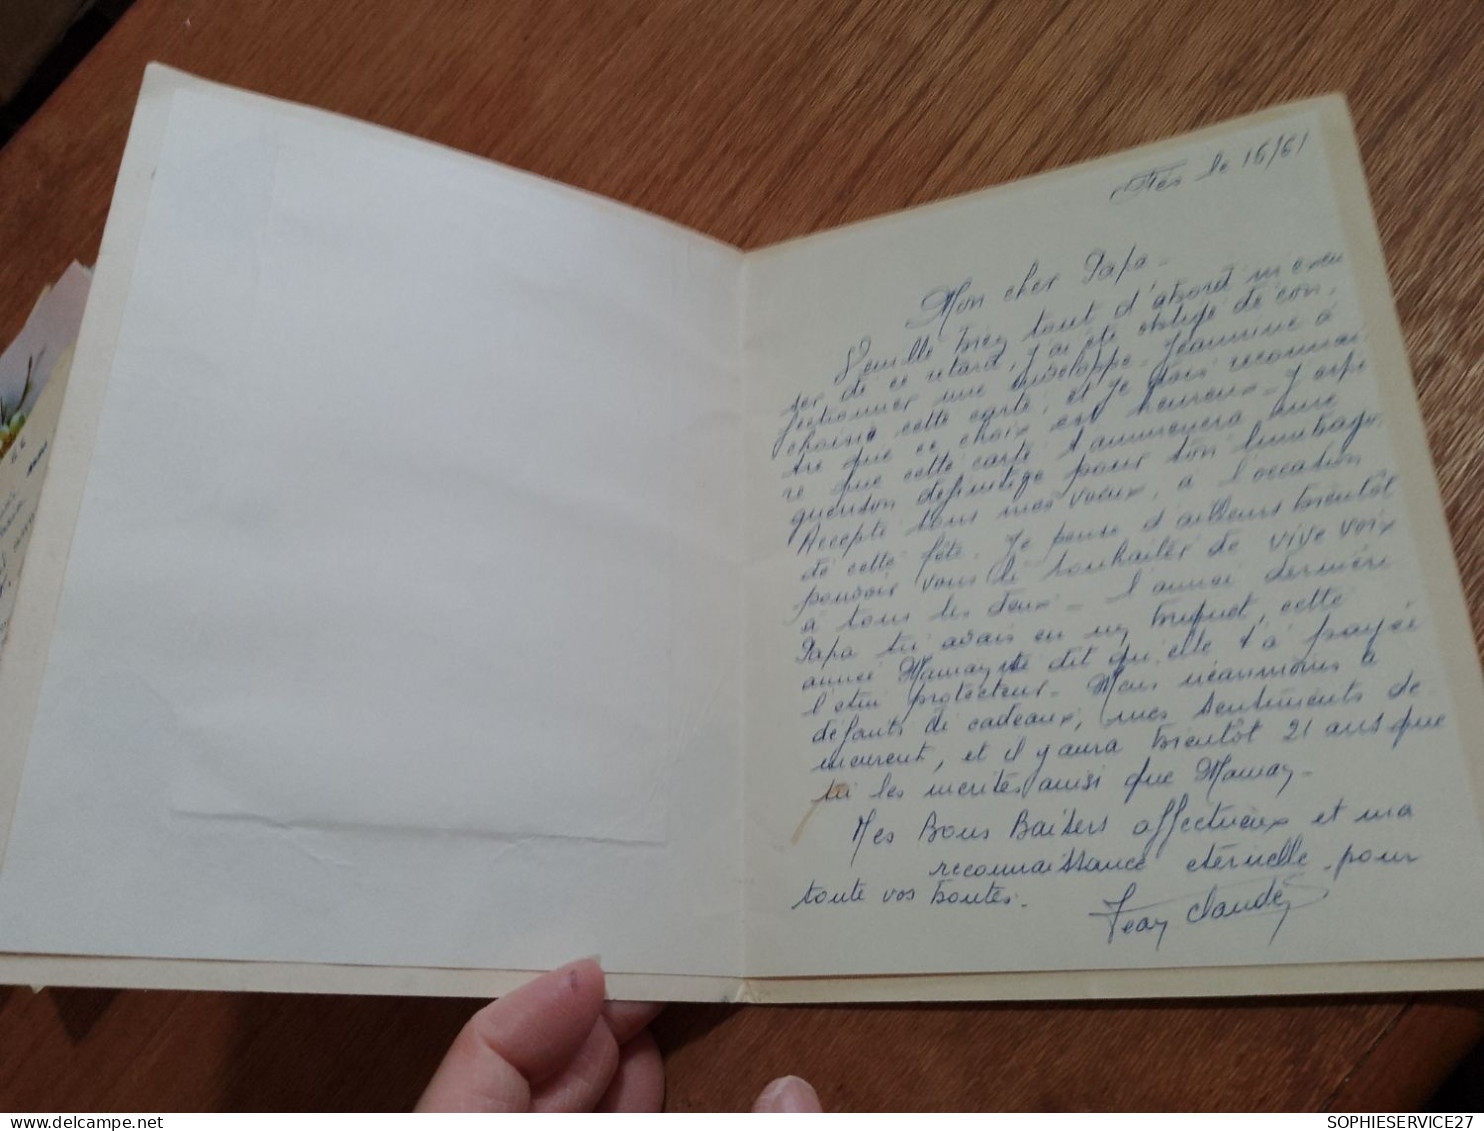 Fès le 16/61
Mon cher Papa -
Veuille bien tout d'abord m'excu
ser de ce retard, j'ai été obligé de con,
fectionner une enveloppe - Jeannine à
choisie cette carte, et je dois reconnai
tre que ce choix est heureux - J'espè
re que cette carte t'ammenera une
guerison definitive pour ton lumbago,
Accepte tous mes voeux, a l'occation
de cette fête. Je pense d'ailleurs bientôt
pouvoir vous le souhaiter de vive voix
a tous les deux - l'année dernière
Papa tu avais eu un briquet, cette
année Maman me dit qu'elle t'a payé
l'étui protecteur - Mais néanmoins a
défauts de cadeaux, mes sentiments de
meurent, et il y aura bientôt 21 ans que
tu les merites ainsi que Maman -
Mes Bons Baisers affectueux et ma
reconnaissance eternelle pour
toute vos bontés.
Jean Claude
SOPHIESERVICE27